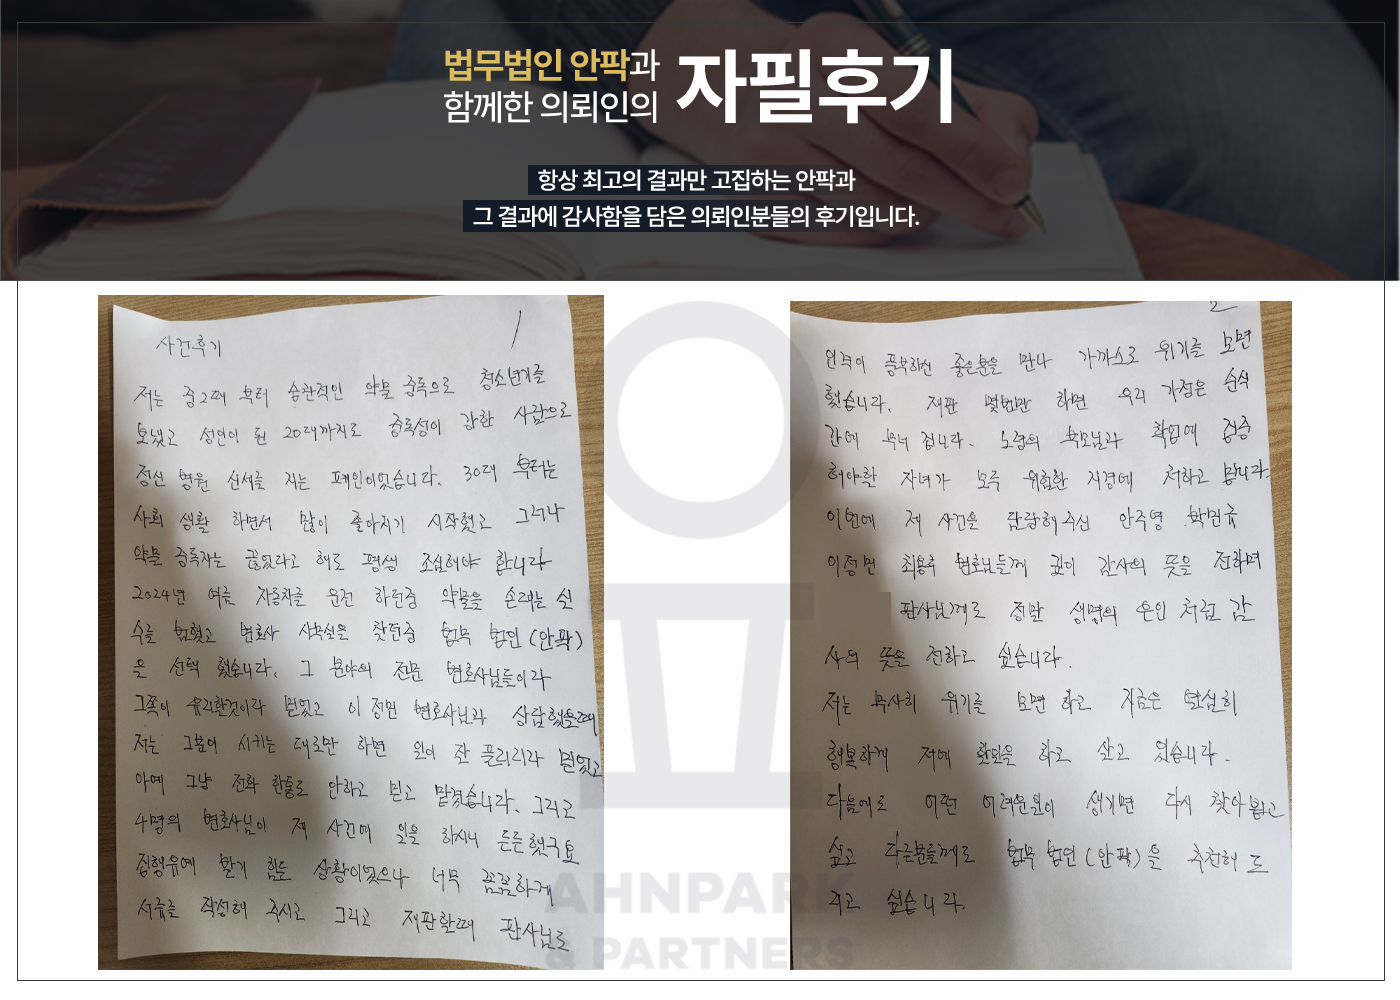 법무법인 안팍과
함께한 의뢰인의
자필후기
항상 최고의 결과만 고집하는 안팍과
그 결과에 감사함을 담은 의뢰인분들의 후기입니다.
1
사건후기
저는 중2때 부터 습관적인 약물 중독으로 청소년기를
보냈고 성인이 된 20대까지도 중독성이 강한 사람으로
정신 병원 신세를 지는 폐인이었습니다. 30대 부터는
사회 생활 하면서 많이 좋아지기 시작했고 그러나
약물 중독자는 끊었다고 해도 평생 조심해야 합니다
2024년 여름 자동차를 운전 하던중 약물을 손대는 실
수를 범했고 변호사 사무실을 찾던중 법무 법인 (안팍)
을 선택 했습니다. 그 분야의 전문 변호사님들이라
그쪽이 유리한것이라 믿었고 이정민 변호사님과 상담했을때
저는 그분이 시키는 대로만 하면 일이 잘 풀리리라 믿었고
아예 그냥 전화 한통도 안하고 믿고 맡겼습니다. 그리고
4명의 변호사님이 제 사건에 일을 하시니 든든했구요
집행유예 받기 힘든 상황이었으나 너무 꼼꼼하게
서류를 작성해 주시고 그리고 재판할때 판사님도
2
인격이 풍부하신 좋은분을 만나 가까스로 위기를 모면
했습니다. 재판 몇번만 하면 우리 가정은 순식
간에 무너 집니다. 노령의 부모님과 학업에 집중
해야할 자녀가 모두 위험한 지경에 처하고 맙니다
이번에 제 사건을 담당해주신 안주영 박민규
이정민 최용록 변호님들께 깊이 감사의 뜻을 전하며
판사님께도 정말 생명의 은인 처럼 감
사의 뜻을 전하고 싶습니다.
저는 무사히 위기를 모면 하고 지금은 열심히
행복하게 저에 할일을 하고 살고 있습니다.
다음에도 어떤 어려운일이 생기면 다시 찾아뵙고
싶고 다른분들께도 법무 법인 (안팍)을 추천해 드
리고 싶습니다.
AHNPARK
& PARTNERS